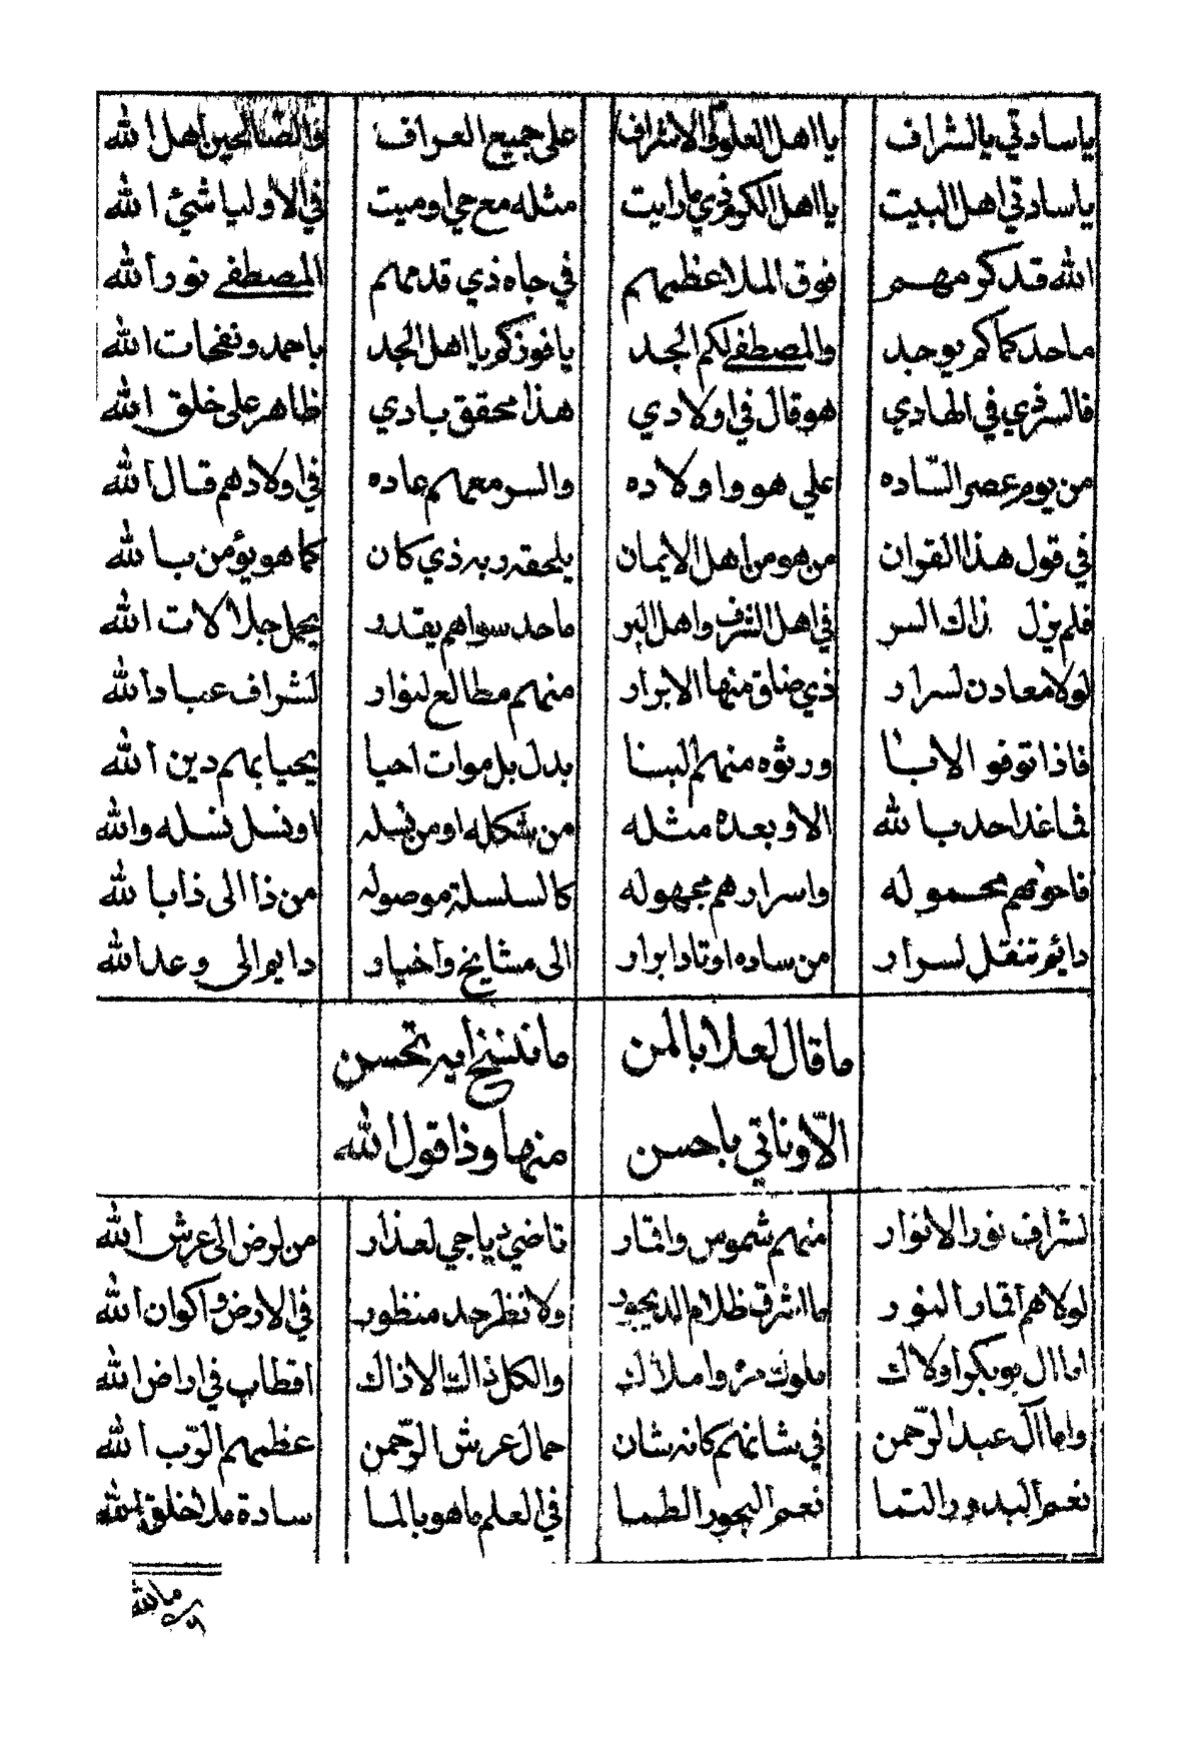 ياسادتي يالشراف يااهل العلو والاشراف على جميع العراف والصالحين اهل الله
ياسادتي اهل البيت يااهل الكرم ذي مارايت مثله مع حي اوميت في الاوليا شيئ الله
الله قد كرمهم فوق الملا عظمهم في جاه ذي قدمهم المصطفى نور الله
ماحد كماكم يوجد والمصطفى لكم الجد يافوزكم يااهل الجد باحمد ونفحات الله
فالسر ذي في الهادي هو قال في اولادي هذا محقق بادي ظاهر على خلق الله
من يوم عصر السّاده علي هو واولاده والسر معهم عاده في اولادهم قال الله
في قول هذا القران من هو من اهل الايمان يلحقه ربه ذي كان كما هو يؤمن بالله
فلم يزل ذاك السر في اهل الشرف واهل البر ماحد سواهم يقدر يحمل جلالات الله
لولا معادن لسرار ذي ضاق منها الابرار منهم مطالع لنوار لشراف عباد الله
فاذا توفو الابا ورثوه منهم البنا بدل بل موات احيا يحيا بهم دين الله
فاغدا احد بالله الا وبعده مثله من شكله او من نسله او نسل نسله والله
فاحوالهم محموله واسرارهم مجهوله كالسلسله موصوله من ذا الى ذا بالله
دايم تنقل لسرار من ساده اوتاد ابرار الى مشايخ واخيار دايم الى وعد الله
ماقال لعلا بالمن ماننسخ ايه تحسن
الّا وناتي باحسن منها وذا قول الله
لشراف نور الانوار منهم شموس واقمار تاضي دياجي لعذار من لرض الى عرش الله
لولاهم اقمار النور مااشرق ظلام الديجور ولا نظر حد منظور في الارض واكوان الله
اما ال بوبكر اولاك ملوك واملاك والكل ذاك الا ذاك اقطاب في اراض الله
واما آل عبد الرّحمن في شانهم كانه شان حمال عرش الرّحمن عظمهم الرّب الله
نعم البدور التما نعم البحور الطما في العلم ماهو بالما سادة ملا خلق الله